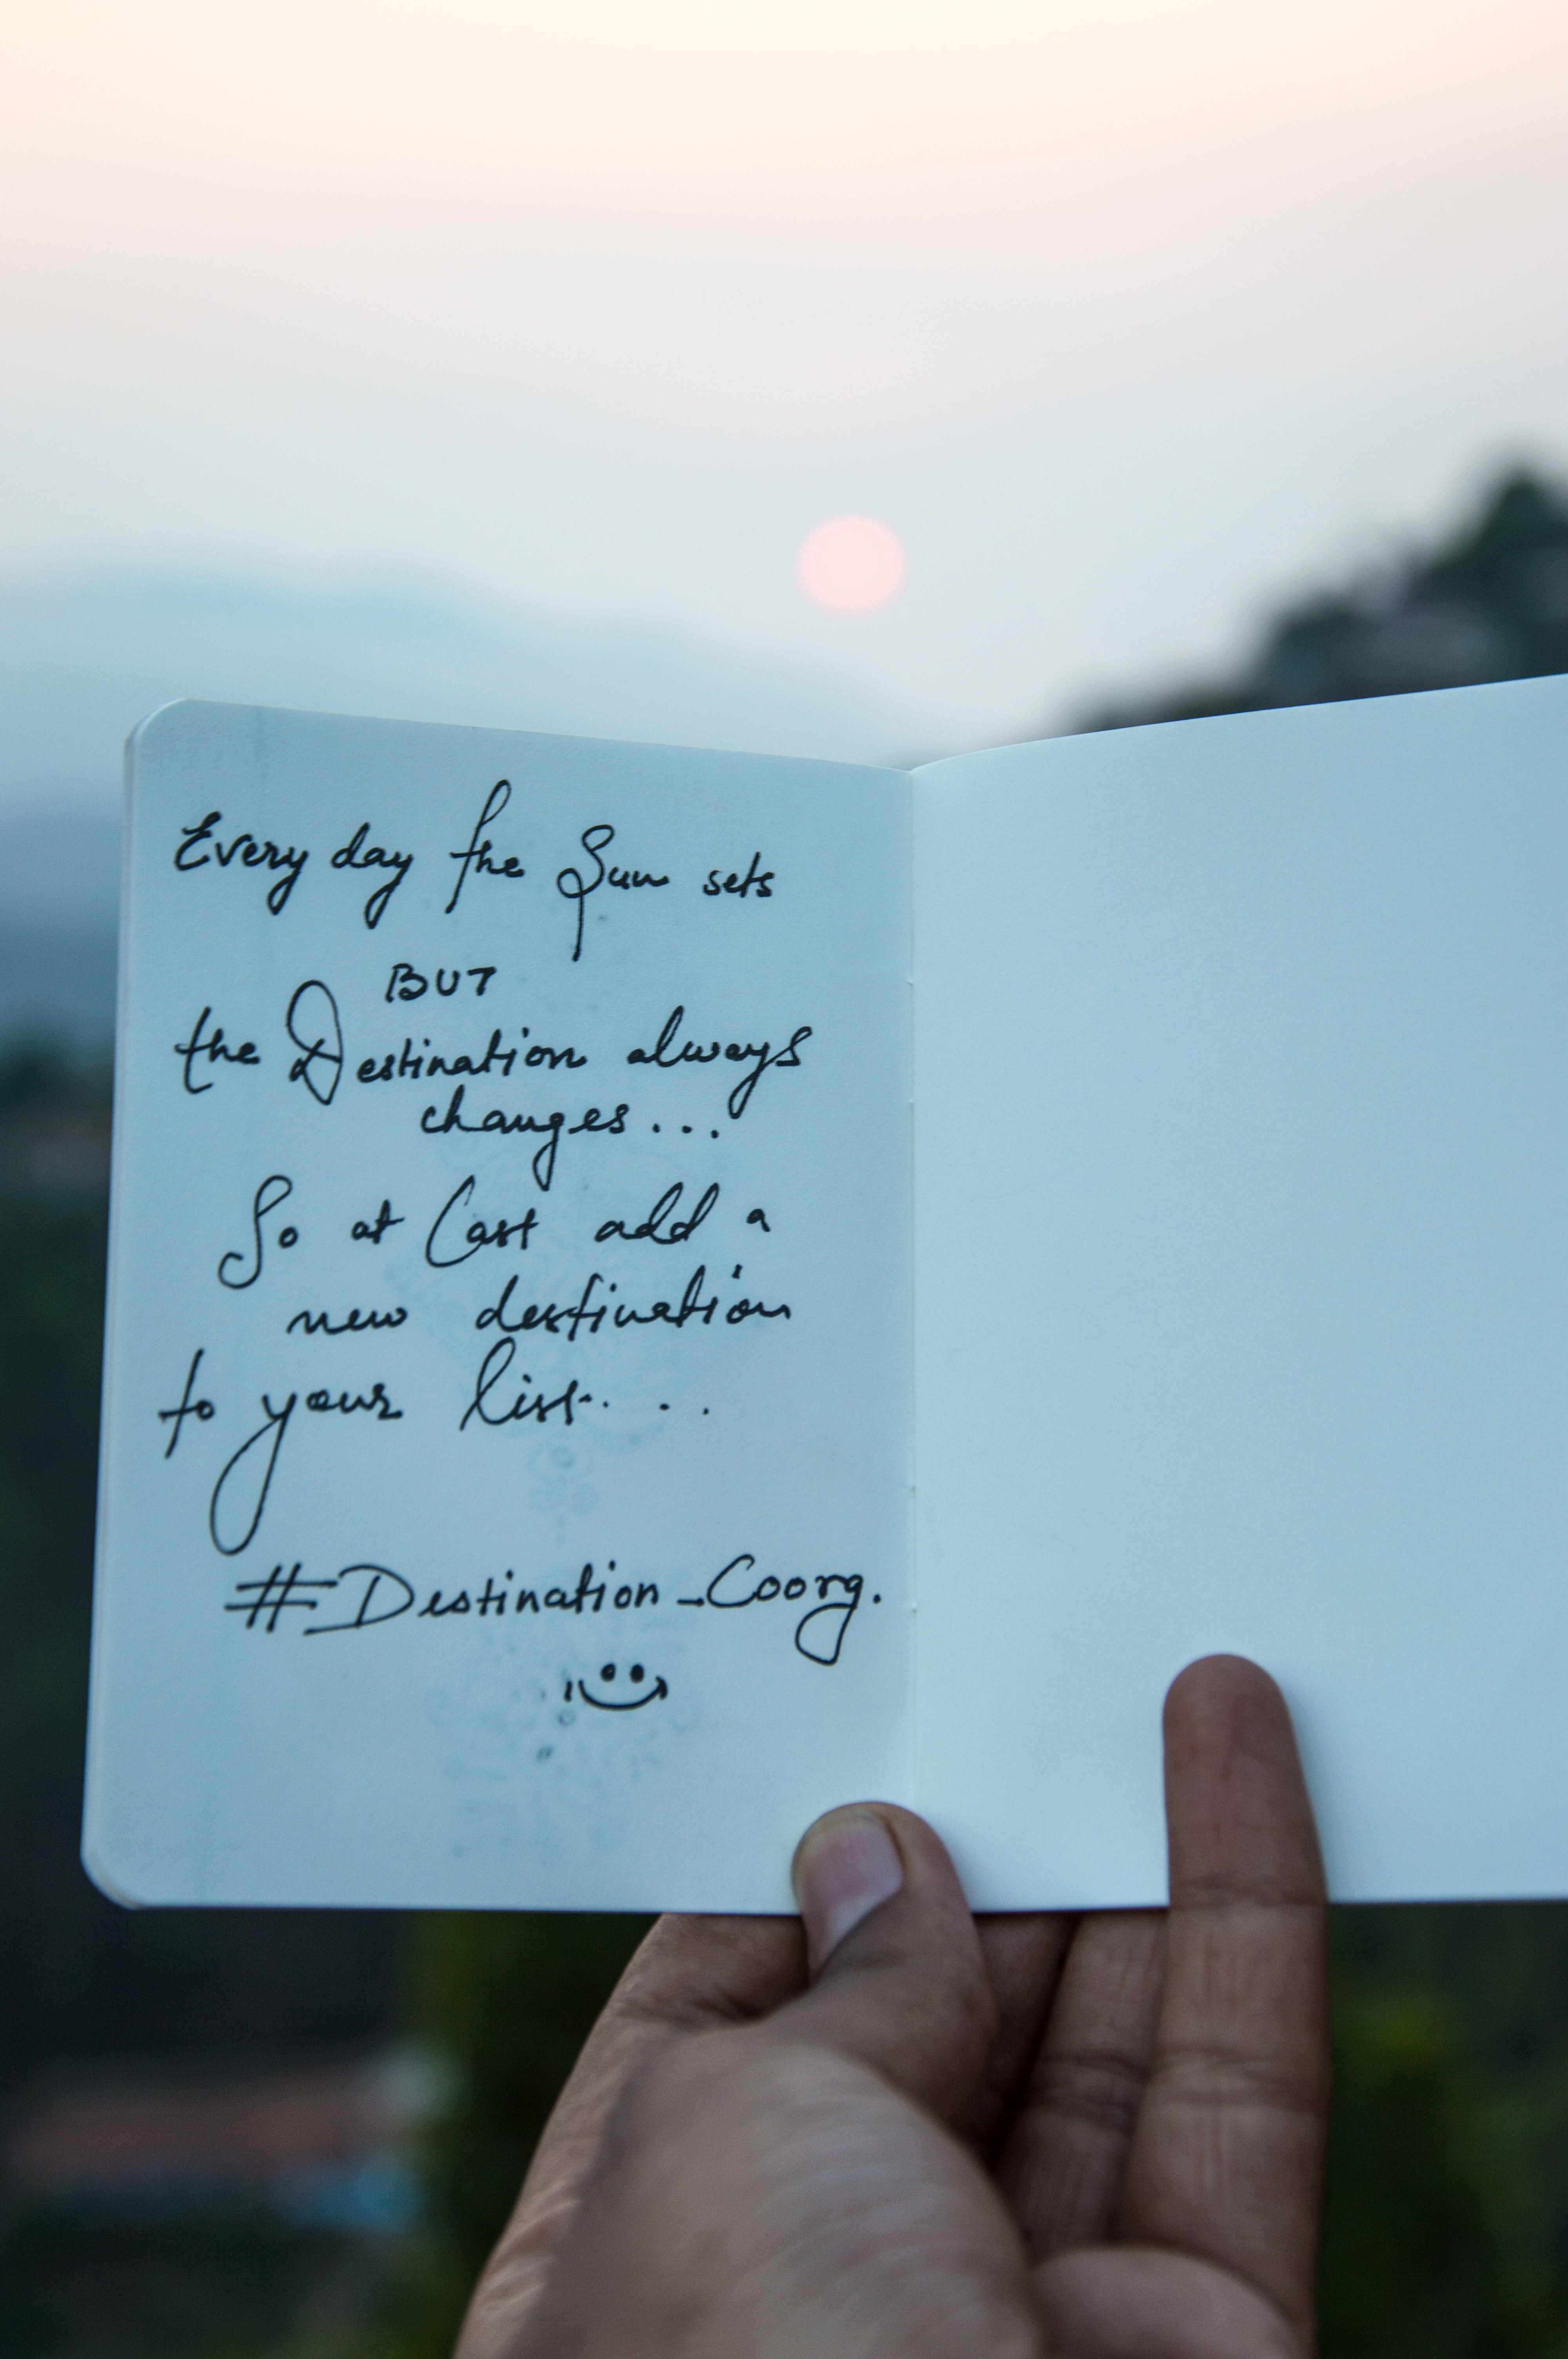 Every day the Sun sets
BUT
the Destination always
changes...
So at Last add a
new destination
to your list...
#Destination_Coorg.